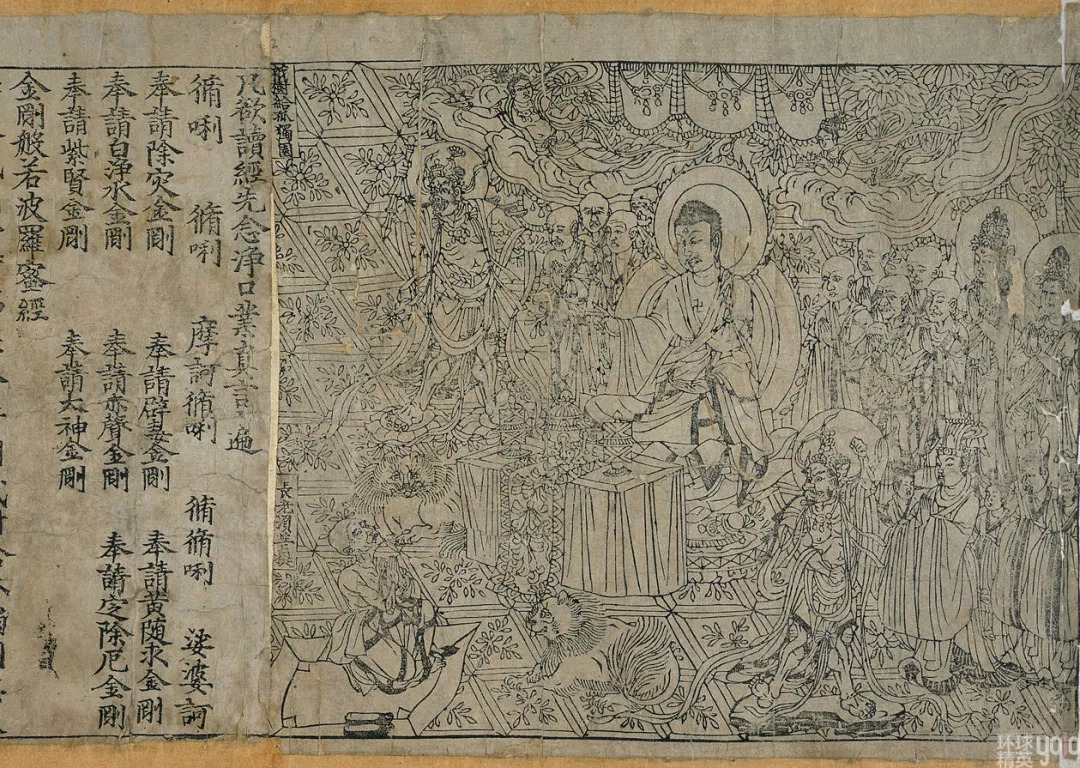 祇樹給孤獨園
長老須菩提
凡欲讀經先念淨口業真言遍
脩唎 脩唎 摩訶脩唎 脩脩唎 娑婆訶
奉請除灾金剛 奉請辟毒金剛 奉請黃随求金剛
奉請白淨水金剛 奉請赤聲金剛 奉請定除厄金剛
奉請紫賢金剛 奉請大神金剛
金剛般若波羅蜜經
环球
精英